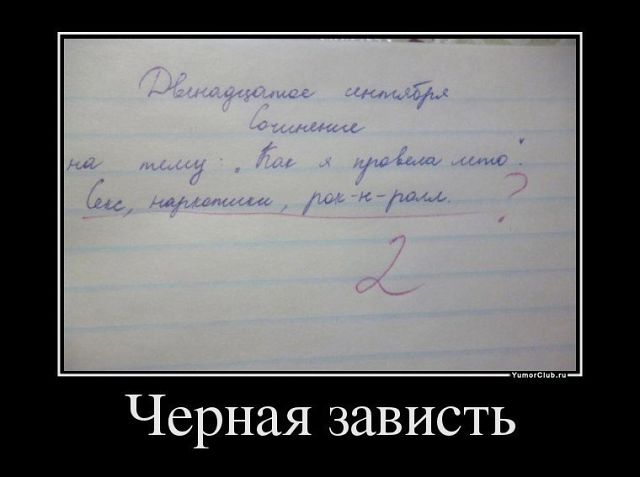 Двенадцатое сентября
Сочинение
на тему: „Как я провела лето".
Секс, наркотики, рок-н-ролл. ?
2
YumorClub.ru
Черная зависть